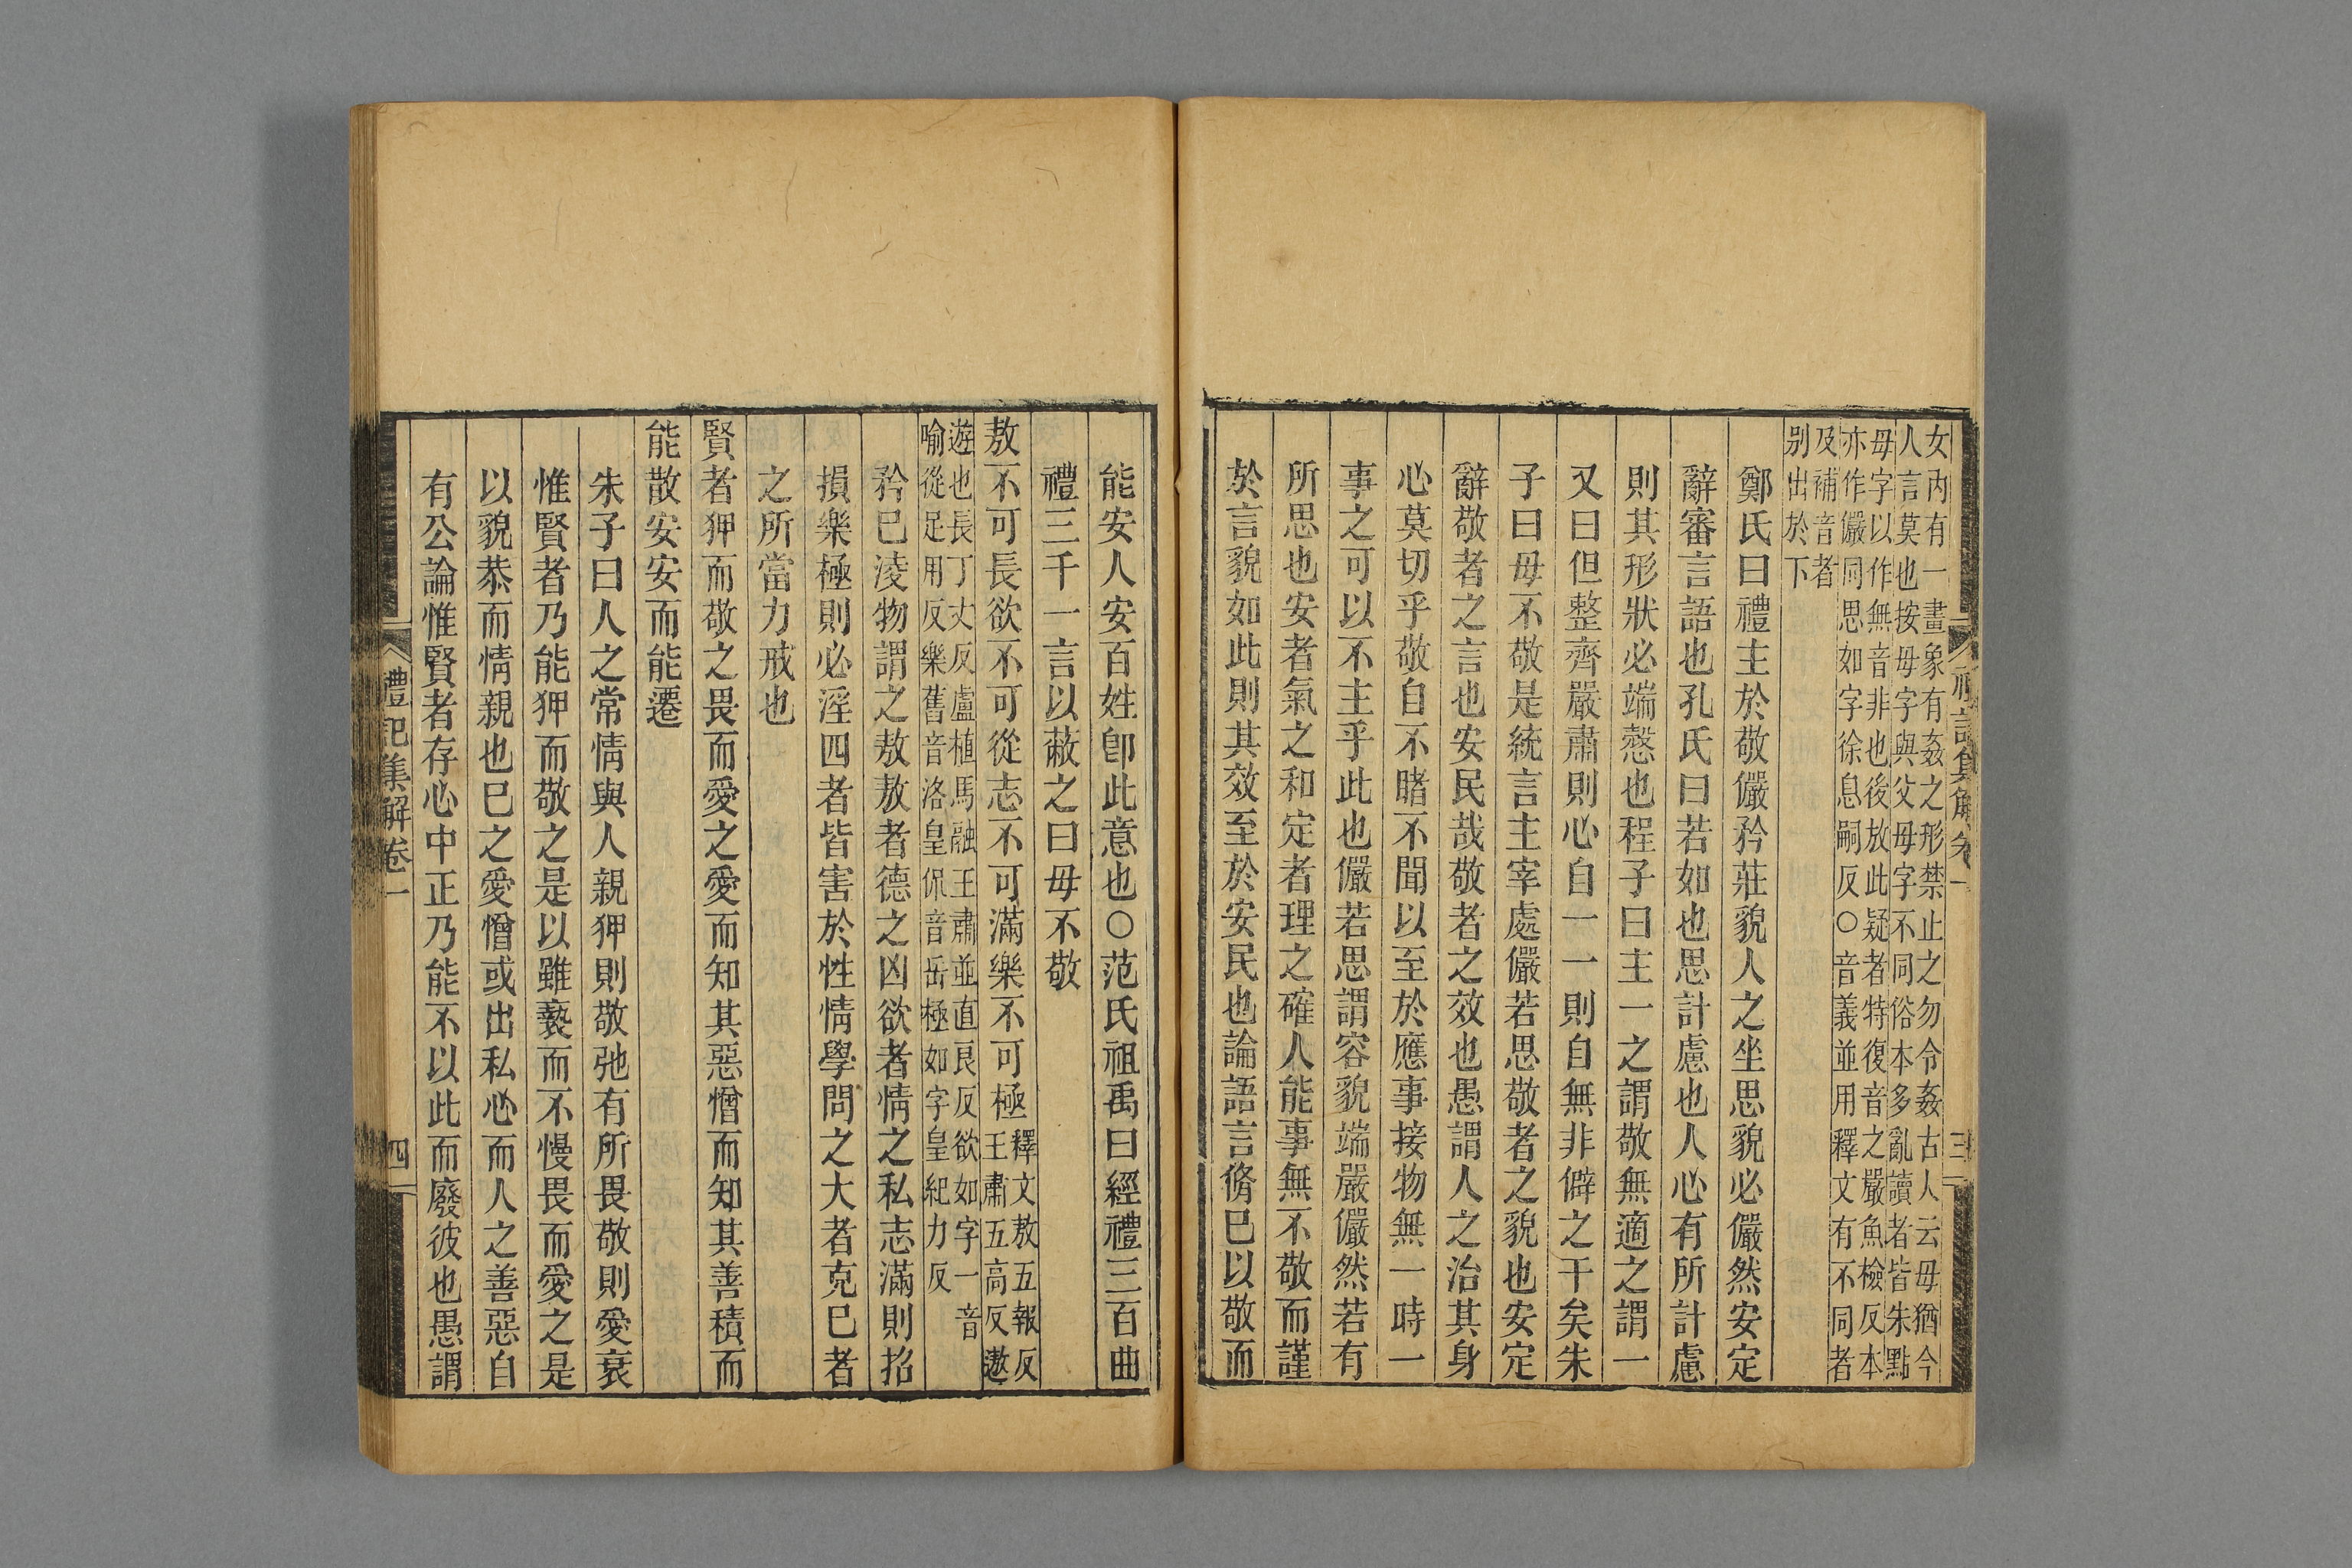 女內有一畫象有姦之形禁止之勿令姦古人云毋猶今
人言莫也按毋字與父母字不同俗本多亂讀者皆朱點
毋字以作無音非也後放此疑者特復音之嚴魚檢反本
亦作儼同思如字徐息嗣反○音義並用釋文有不同者
及補音者
别出於下
鄭氏曰禮主於敬儼矜莊貌人之坐思貌必儼然安定
辭審言語也孔氏曰若如也思計慮也人心有所計慮
則其形狀必端慤也程子曰主一之謂敬無適之謂一
又曰但整齊嚴肅則心自一一則自無非僻之干矣朱
子曰毋不敬是統言主宰處儼若思敬者之貌也安定
辭敬者之言也安民哉敬者之效也愚謂人之治其身
心莫切乎敬自不睹不聞以至於應事接物無一時一
事之可以不主乎此也儼若思謂容貌端嚴儼然若有
所思也安者氣之和定者理之確人能事無不敬而謹
於言貌如此則其效至於安民也論語言脩己以敬而
能安人安百姓卽此意也○范氏祖禹曰經禮三百曲
禮三千一言以蔽之曰毋不敬
敖不可長欲不可從志不可滿樂不可極
釋文敖五報反
王肅五高反遨
遊也長丁丈反盧植馬融王肅並直良反欲如字一音
喻從足用反樂舊音洛皇侃音岳極如字皇紀力反
矜己凌物謂之敖敖者德之凶欲者情之私志滿則招
損樂極則必淫四者皆害於性情學問之大者克己者
之所當力戒也
賢者狎而敬之畏而愛之愛而知其惡憎而知其善積而
能散安安而能遷
朱子曰人之常情與人親狎則敬弛有所畏敬則愛衰
惟賢者乃能狎而敬之是以雖褻而不慢畏而愛之是
以貌恭而情親也己之愛憎或出私心而人之善惡自
有公論惟賢者存心中正乃能不以此而廢彼也愚謂
禮記集解卷一
四